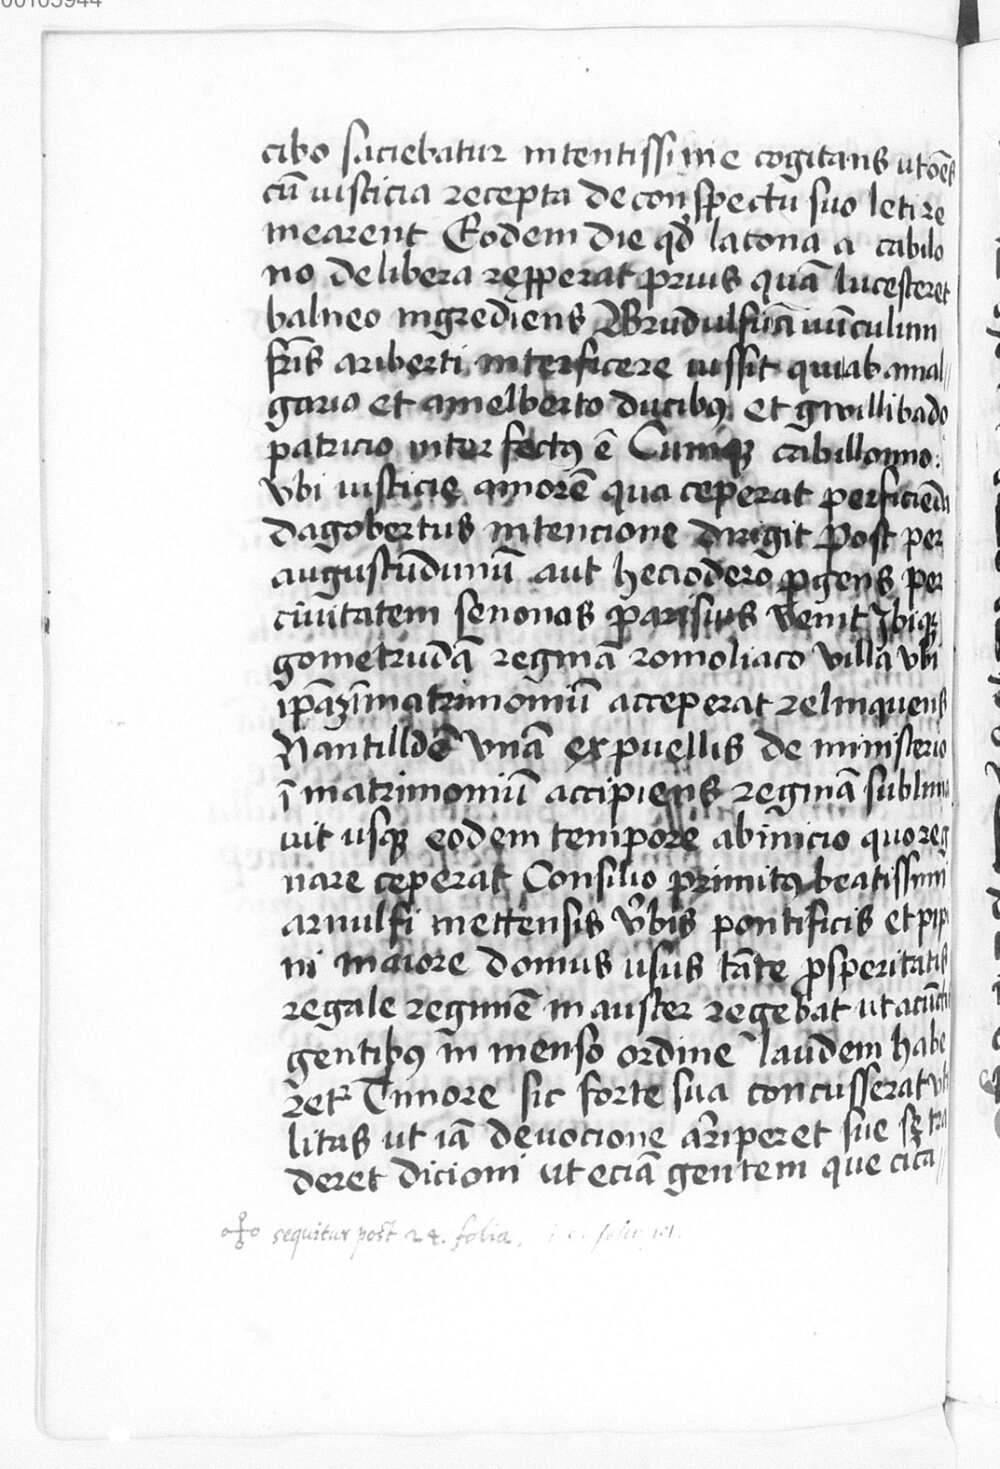 cibo saciebatur intentissime cogitans ut oēs
cū iusticia recepta de conspectu suo leti re
mearent Eodem die qd latona a cabilo
no deliberareṗperat prius quā lucesceret
balneo ingrediens Brudulfū auūculum
fr̄is ariberti interficere iussit qui ab amal
gario et amelberto ducibꝫ et gwillibado
patricio interfectꝰ ē Cumqꝫ cabillonno:
vbi iusticie amorē qua ceperat perficiēda
dagobertus intencione dirigit Post per
augustūdunū aut heciodero ꝑgens per
ciuitatem senonas parisius venit Ibiqꝫ
gometrudā reginā romoliaco villa vbi
ip̄aꝫ ī matrimoniū acceperat relinquens
Nantilldē vnā ex puellis de ministerio
ī matrimoniū accipiens reginā sublima
uit usqꝫ eodem tempore ab inicio quo reg
nare ceperat Consilio primitꝰ beatissimi
arnulfi mettensis vrbis pontificis et pipi
ni maiore domus usus tāte ꝓsperitatis
regale regimē in auster regebat ut a cūctis
gentibꝰ in menso ordine laudem habe
ret Timore sic forte sua concusserat vti
litas ut iā deuocione arriperet sue sꝫ tra
deret dicioni ut eciā gentem que circa
sequitur post 24. folia.